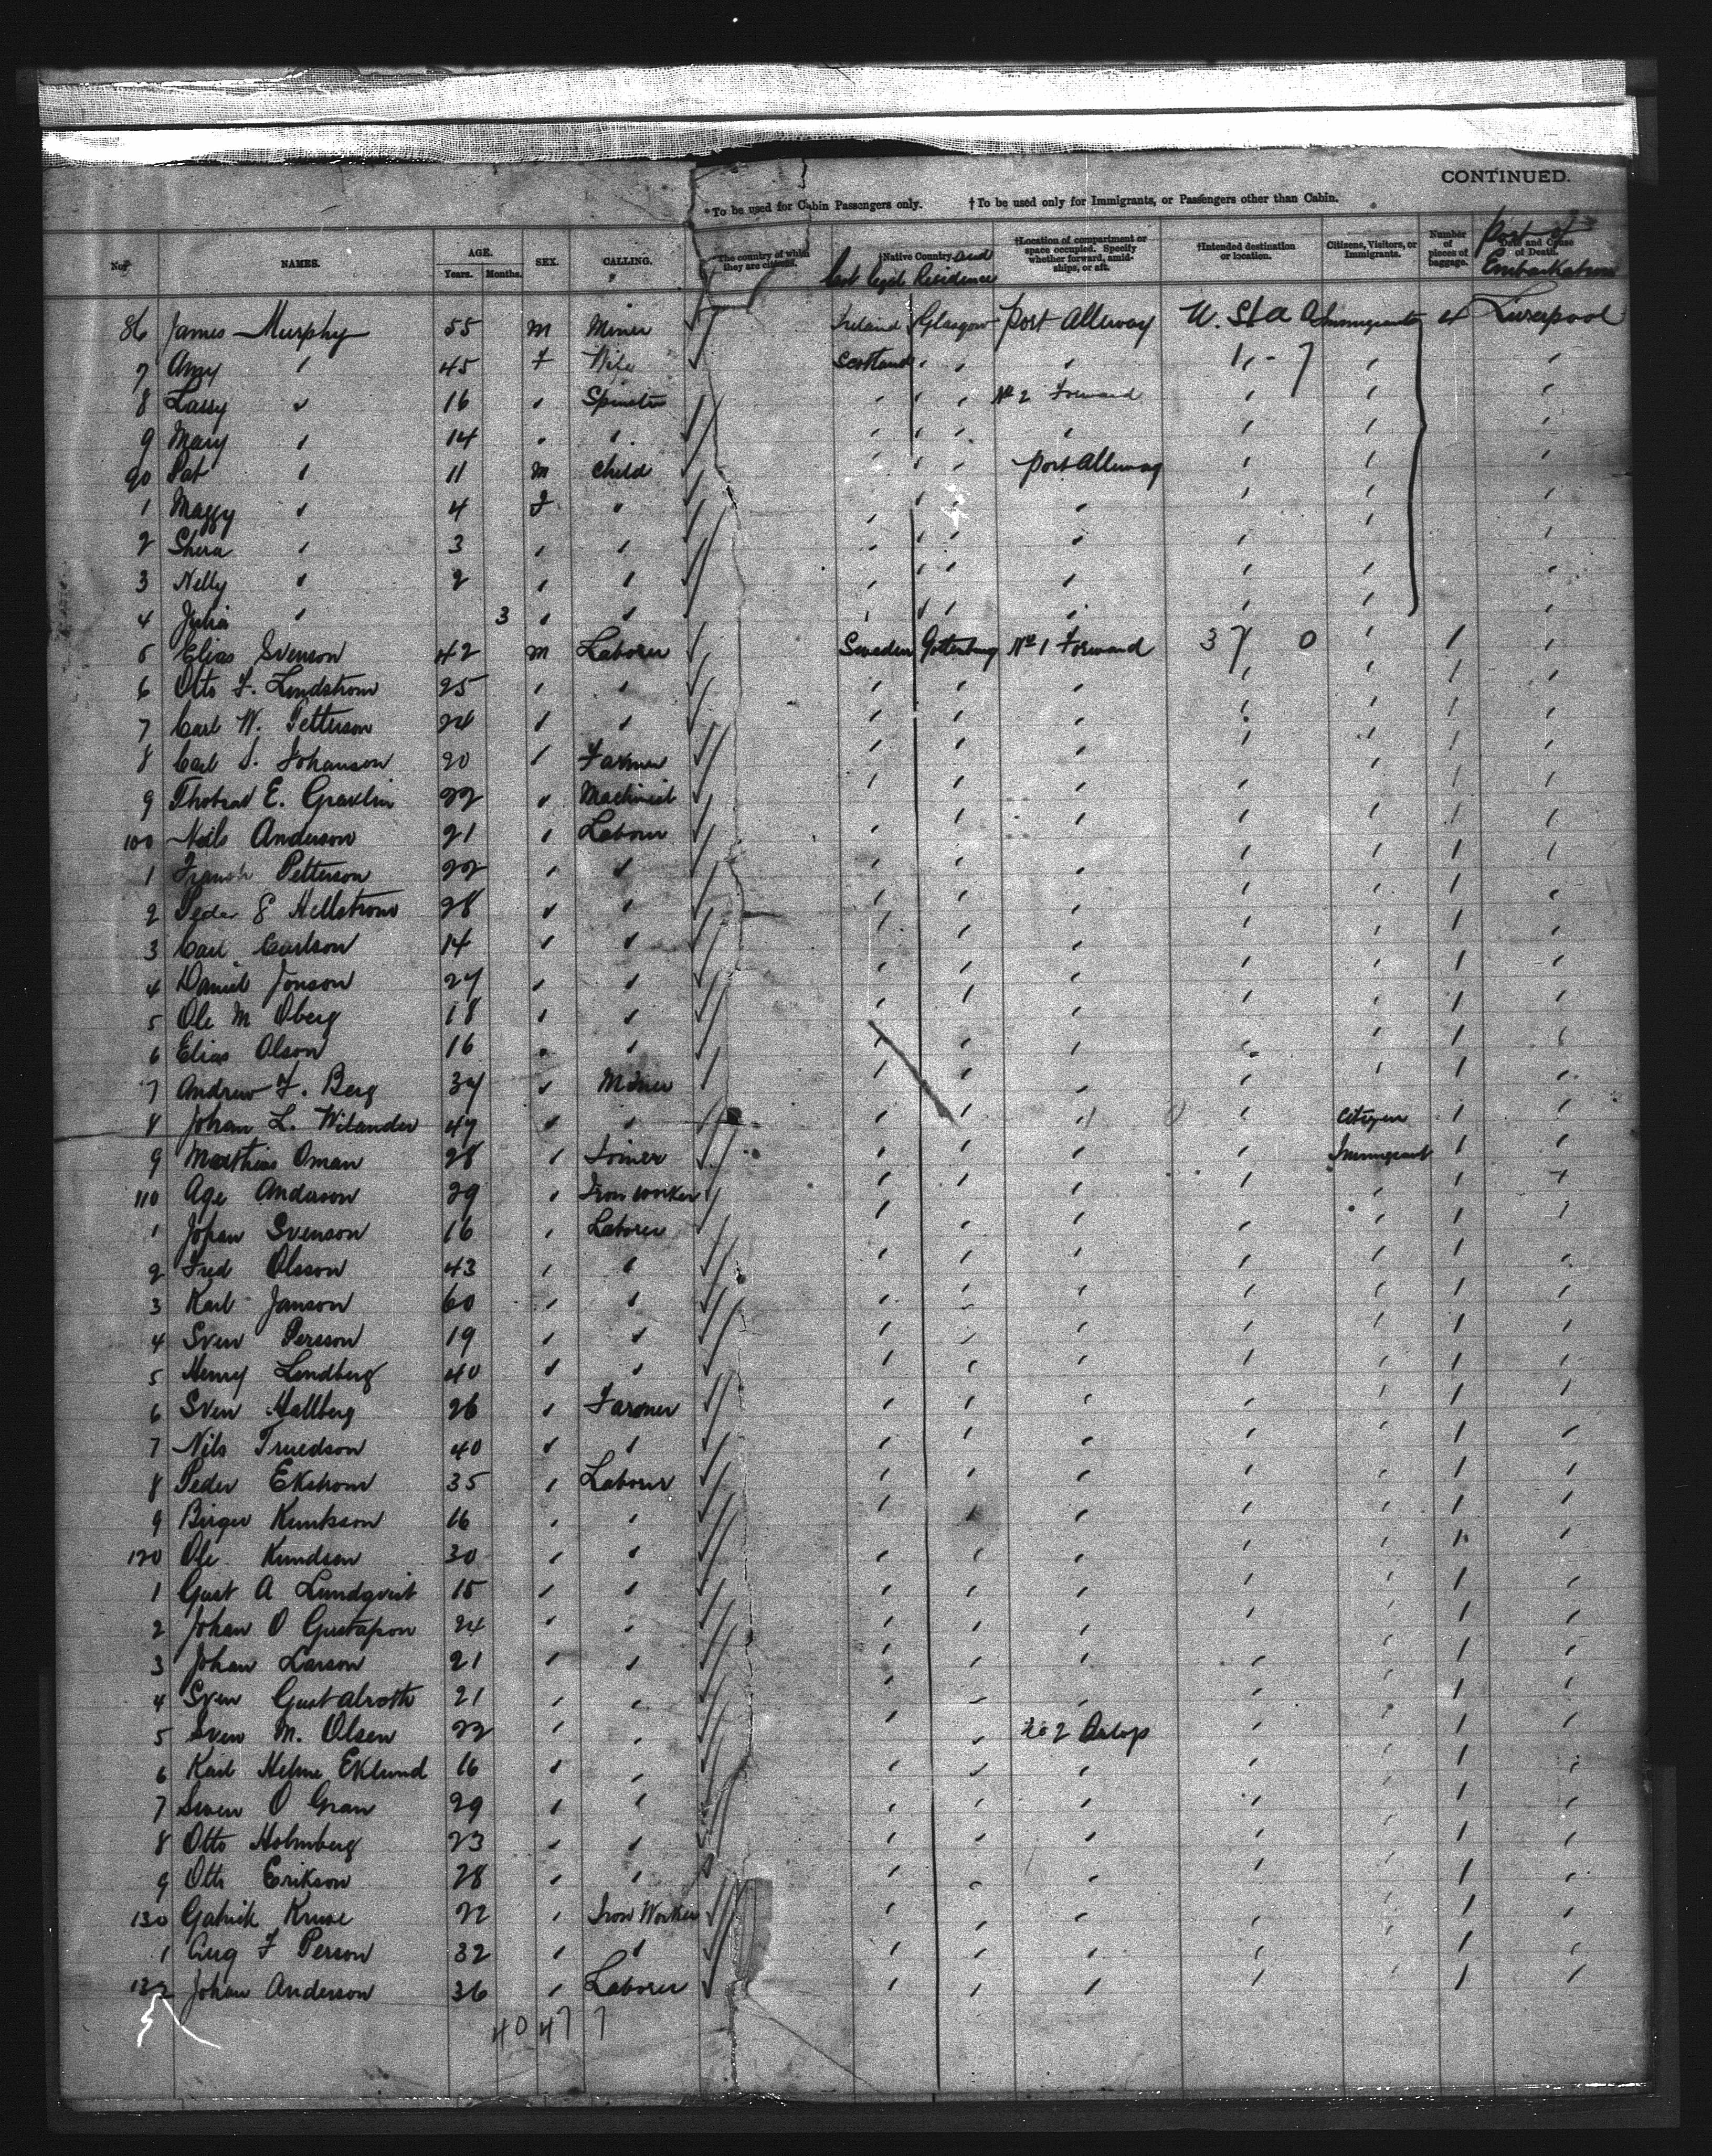 CONTINUED.
*To be used for Cabin Passengers only. †To be used only for Immigrants, or Passengers other than Cabin.
Nos. NAMES. AGE. Years. Months. SEX. CALLING. *The country of which they are citizens. †Native Country and last legal Residence †Location of compartment or space occupied. Specify whether forward, amidships, or aft. †Intended destination or location. Citizens, Visitors, or Immigrants. Number of pieces of baggage. Date and Cause of Death. Port of Embarkation
86 James Murphy 55 M Miner Ireland Glasgow Port Alleway U. St A Immigrants 4 Liverpool
7 Amy " 45 F Wife Scotland " " " " " "
8 Lassy " 16 " Spinster " " " No 2 Forward " " "
9 Mary " 14 " " " " " " " " "
90 Pat " 11 M Child " " " Port Alleway " " "
1 Maggy " 4 F " " " " " " " "
2 Shera " 3 " " " " " " " " "
3 Nelly " 2 " " " " " " " " "
4 Julia " 3 " " " " " " " " "
5 Elias Svenson 42 M Laborer Sweden Gottenburg No 1 Forward " " 1 "
6 Otto F. Lindstrom 25 " " " " " " " 1 "
7 Carl W. Petterson 24 " " " " " " " 1 "
8 Carl S. Johanson 20 " Farmer " " " " " 1 "
9 E. Gravlin 22 " Machinist " " " " " 1 "
100 Neils Anderson 21 " Laborer " " " " " 1 "
1 Petterson 22 " " " " " " " 1 "
2 Peder E Hellstrom 28 " " " " " " " 1 "
3 Carl Carlson 14 " " " " " " " 1 "
4 Daniel Jonson 24 " " " " " " " 1 "
5 Ole M Oberg 18 " " " " " " " 1 "
6 Elias Olson 16 " " " " " " " 1 "
7 Andrew F. Berg 34 " Miner " " " " " 1 "
8 Johan L. Wilander 49 " " " " " " Citizen 1 "
9 Matthias Oman 28 " Joiner " " " " Immigrant 1 "
110 Age Anderson 29 " Iron worker " " " " " 1 "
1 Johan Svenson 16 " Laborer " " " " " 1 "
2 Fred Olsson 43 " " " " " " " 1 "
3 Karl Janson 60 " " " " " " " 1 "
4 Sven Persson 19 " " " " " " " 1 "
5 Henry Lindberg 40 " " " " " " " 1 "
6 Sven Hallberg 26 " Farmer " " " " " 1 "
7 Nils Truedson 40 " " " " " " " 1 "
8 Peder Ekstrom 35 " Laborer " " " " " 1 "
9 Birger Knutsson 16 " " " " " " " 1 "
120 Ole Kundson 30 " " " " " " " 1 "
1 Gust A Lundqvist 15 " " " " " " " 1 "
2 Johan O Gustafson 24 " " " " " " " 1 "
3 Johan Larson 21 " " " " " " " 1 "
4 Sven Gustalroth 21 " " " " " " " 1 "
5 Sven M. Olsen 22 " " " " No 2 " " 1 "
6 Karl Helme Eklund 16 " " " " " " " 1 "
7 Swen O Gran 29 " " " " " " " 1 "
8 Otto Holmberg 23 " " " " " " " 1 "
9 Otto Erikson 28 " " " " " " " 1 "
130 Kruse 22 " Iron Worker " " " " " 1 "
1 Aug F Person 32 " " " " " " " 1 "
132 Johan Anderson 36 " Laborer " " " " " 1 "
40 47 7